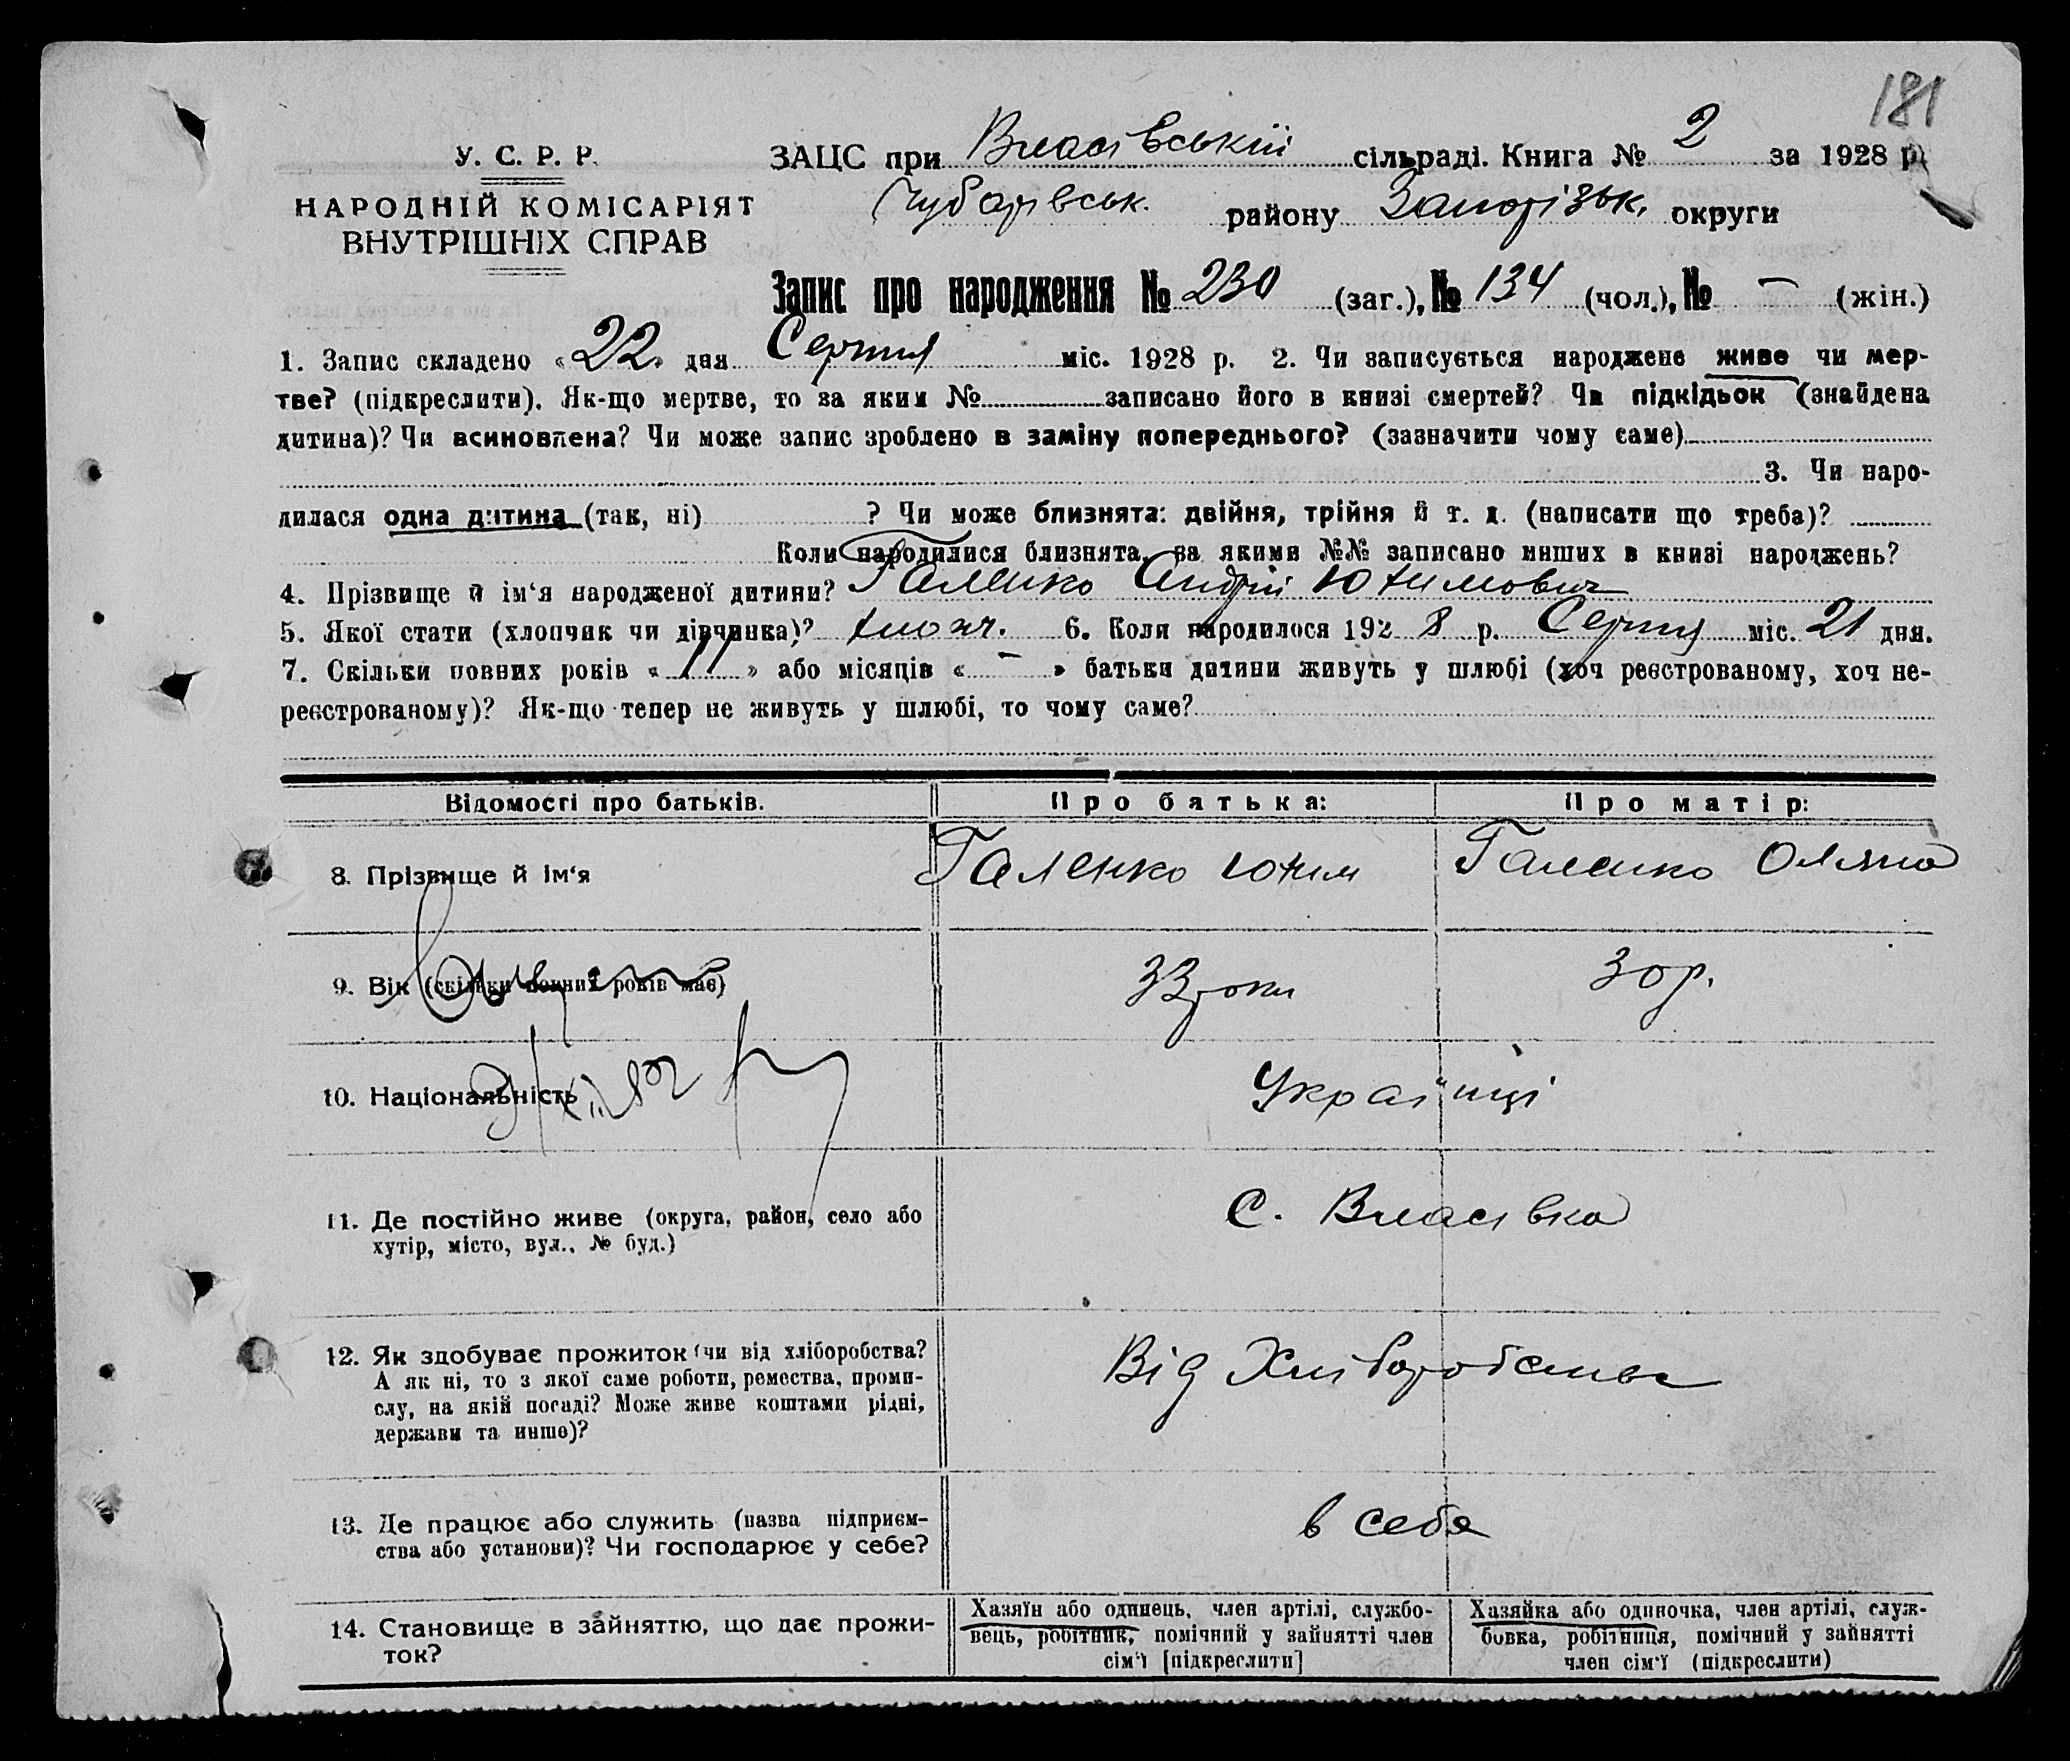 181
У. С. Р. Р.
НАРОДНІЙ КОМІСАРІЯТ
ВНУТРІШНІХ СПРАВ
ЗАЦС при Власівській сільраді. Книга № 2 за 1928 р.
Чубарівськ. району Запорізьк. округи
Запис про народження № 230 (заг.), № 134 (чол.), № — (жін.)
1. Запис складено «22» дня Серпня міс. 1928 р. 2. Чи записується народжене живе чи мер-
тве? (підкреслити). Як-що мертве, то за яким № записано його в книзі смертей? Чи підкідьок (знайдена
дитина)? Чи всиновлена? Чи може запис зроблено в заміну попереднього? (зазначити чому саме)
3. Чи наро-
дилася одна дитина (так, ні) ? Чи може близнята: двійня, трійня й т. д. (написати що треба)?
Коли народилися близнята, за якими №№ записано инших в книзі народжень?
4. Прізвище й ім‘я народженої дитини? Галенко Андрій Юхимович
5. Якої стати (хлопчик чи дівчинка)? хлопч. 6. Коли народилося 1928 р. Серпня міс. 21 дня.
7. Скільки повних років «11» або місяців «—» батьки дитини живуть у шлюбі (хоч реєстрованому, хоч не-
реєстрованому)? Як-що тепер не живуть у шлюбі, то чому саме?
Відомості про батьків. Про батька: Про матір:
8. Прізвище й ім‘я Галенко Юхим Галенко Оляна
9. Вік (скільки повних років має) 33 роки 30 р.
10. Національність Українці
11. Де постійно живе (округа, район, село або
хутір, місто, вул., № буд.)
С. Власівка
12. Як здобуває прожиток (чи від хліборобства?
А як ні, то з якої саме роботи, ремества, проми-
слу, на якій посаді? Може живе коштами рідні,
держави та инше)?
Від Хліборобства
13. Де працює або служить (назва підприєм-
ства або установи)? Чи господарює у себе?
в себе
14. Становище в зайняттю, що дає прожи-
ток?
Хазяїн або одинець, член артілі, службо-
вець, робітник, помічний у зайнятті член
сім‘ї [підкреслити]
Хазяйка або одиночка, член артілі, служ-
бовка, робітниця, помічний у зайнятті
член сім‘ї (підкреслити)